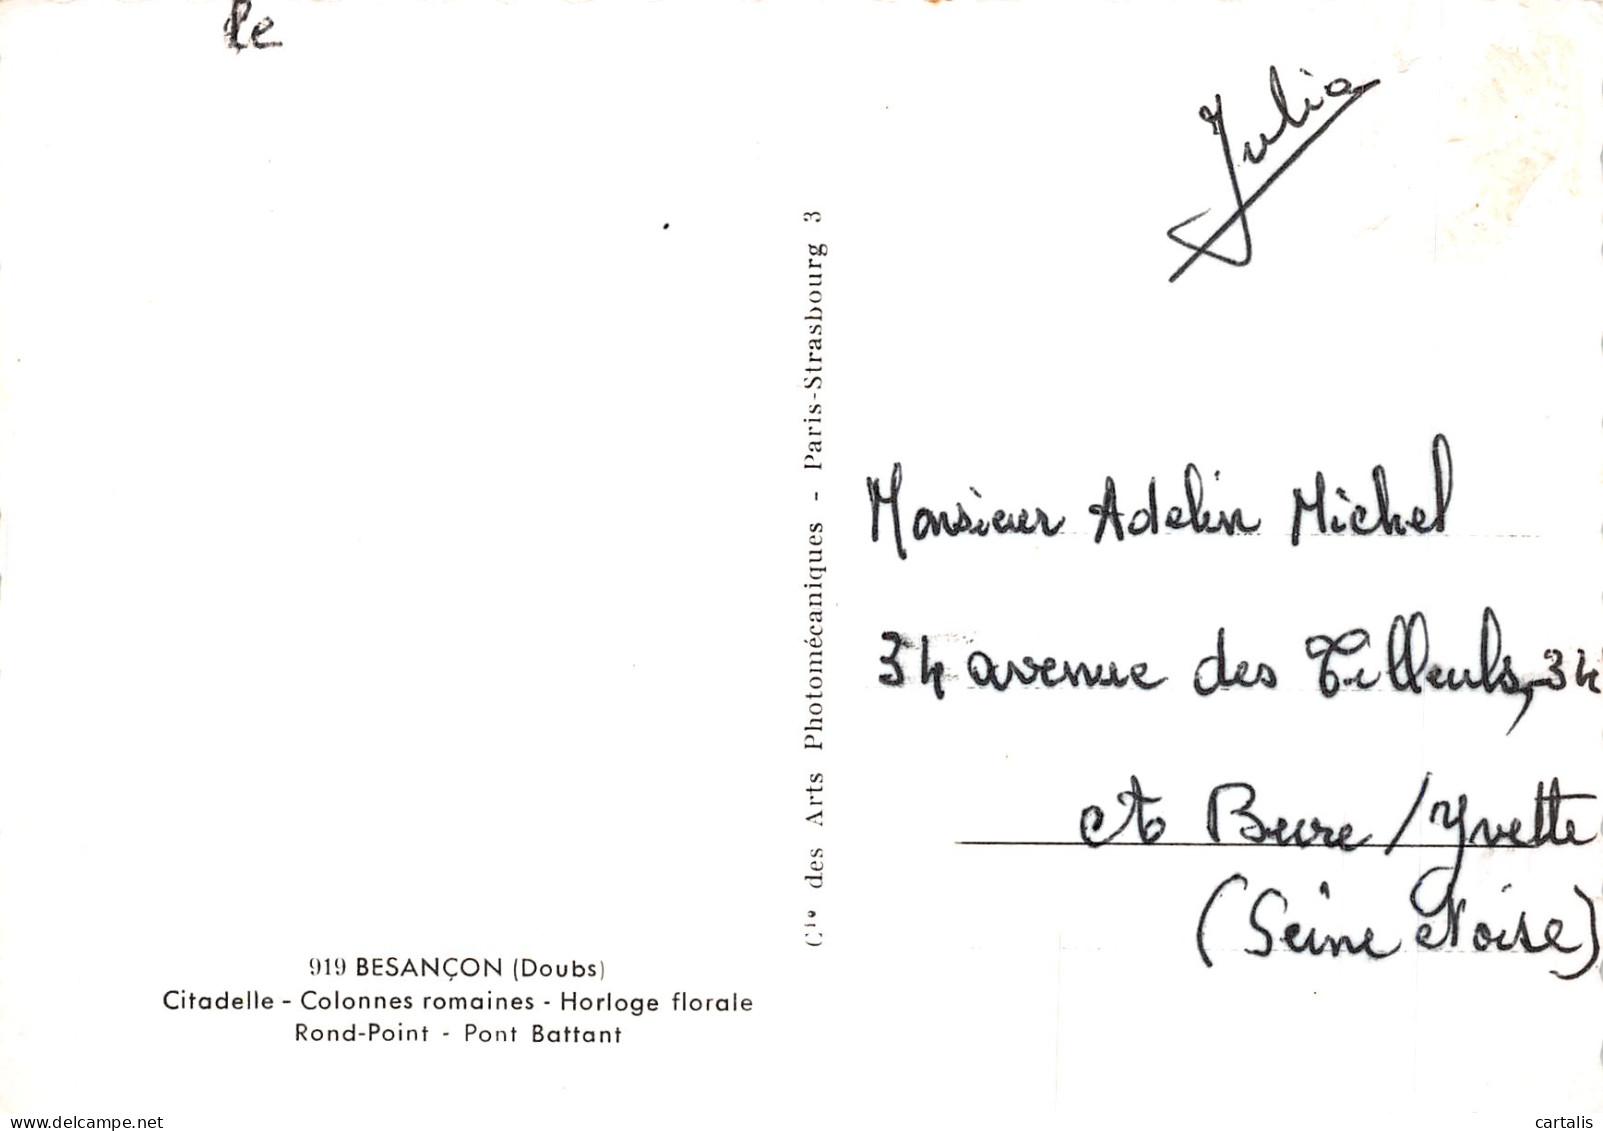 le
Julia
Cie des Arts Photomécaniques - Paris-Strasbourg 3
Monsieur Adelin Michel
34 avenue des Tilleuls, 34
Bure / Yvette
(Seine &oise)
919 BESANÇON (Doubs)
Citadelle - Colonnes romaines - Horloge florale
Rond-Point - Pont Battant
www.delcampe.net
cartalis